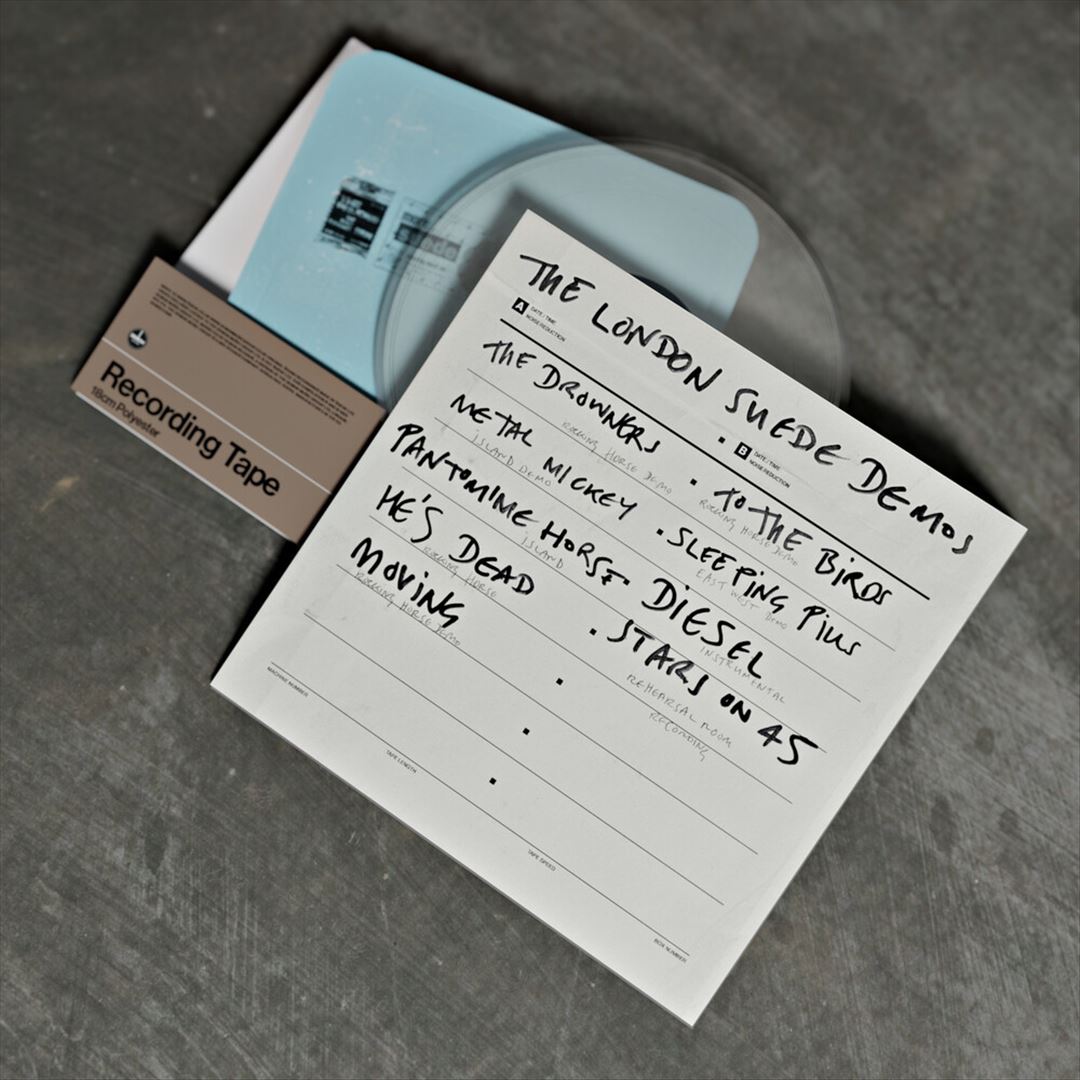 THE LONDON SUEDE DEMOS
A DATE / TIME
NOISE REDUCTION
B DATE / TIME
NOISE REDUCTION
THE DROWNERS
ROCKING HORSE DEMO
METAL MICKEY
ISLAND DEMO
PANTOMIME HORSE
ISLAND
HE'S DEAD
ROCKING HORSE
MOVING
ROCKING HORSE DEMO
TO THE BIRDS
ROCKING HORSE DEMO
SLEEPING PILLS
EAST WEST DEMO
DIESEL
INSTRUMENTAL
STARS ON 45
REHEARSAL ROOM
RECORDING
MACHINE NUMBER
TAPE LENGTH
TAPE SPEED
BOX NUMBER
Recording Tape
18cm Polyester